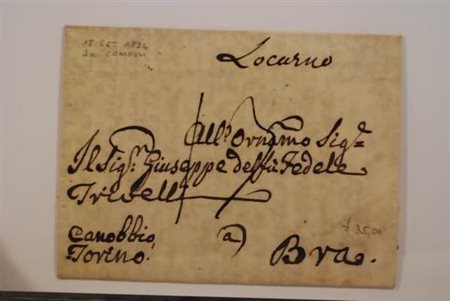 15 SET 1824
Locarno
All'Ornamo Sigr
Il Sigr Giuseppe del fu Fedele
Trivelli
Canobbio
Torino.
a
Bra.
35,00